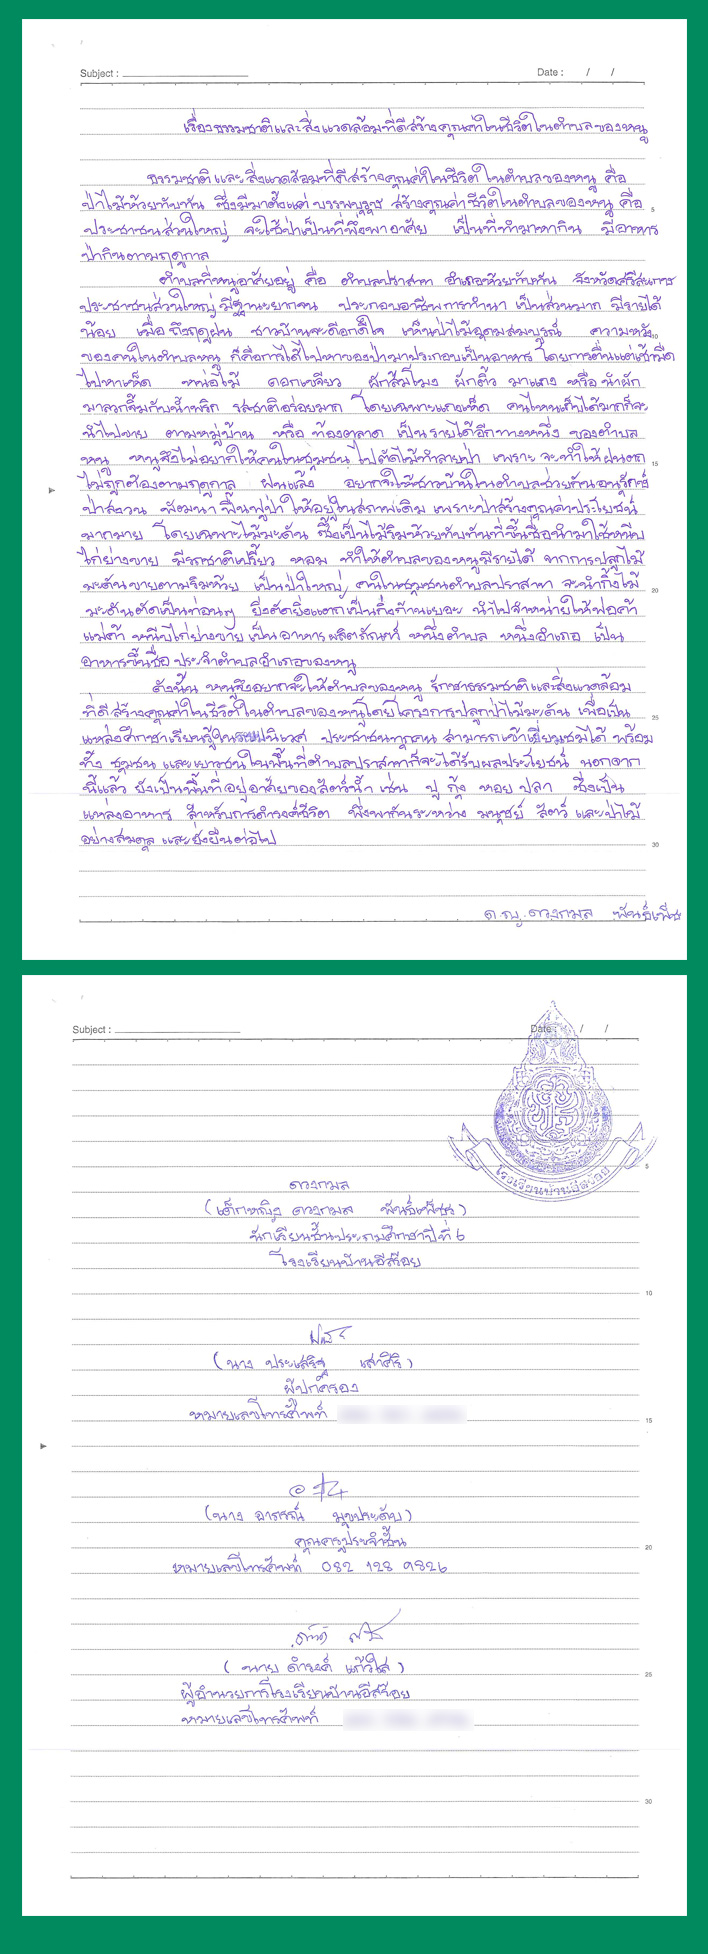 Subject : Date : / /
เรื่องธรรมชาติและสิ่งแวดล้อมที่ดีสร้างคุณค่าในชีวิตในตำบลของหนู
ธรรมชาติและสิ่งแวดล้อมที่ดีสร้างคุณค่าในชีวิตในตำบลของหนู คือ
ป่าไม้ห้วยทับทัน ซึ่งมีมาตั้งแต่บรรพบุรุษ สร้างคุณค่าชีวิตในตำบลของหนู คือ
5
ประชาชนส่วนใหญ่ จะใช้ป่าเป็นที่พึ่งพาอาศัย เป็นที่ทำมาหากิน มีอาหาร
ป่ากินตามฤดูกาล
ตำบลที่หนูอาศัยอยู่ คือ ตำบลปราสาท อำเภอห้วยทับทัน จังหวัดศรีสะเกษ
ประชาชนส่วนใหญ่มีฐานะยากจน ประกอบอาชีพการทำนา เป็นส่วนมาก มีรายได้
น้อย เมื่อถึงฤดูฝน ชาวบ้านจะดีอกดีใจ เห็นป่าไม้อุดมสมบูรณ์ ความหวัง
10
ของคนในตำบลหนู ก็คือการได้ไปหาของป่ามาประกอบเป็นอาหาร โดยการตื่นแต่เช้ามืด
ไปหาเห็ด หน่อไม้ ดอกกระเจียว ผักส้มโมง ผักติ้ว มาแกง หรือ นำผัก
มาลวกจิ้มกับน้ำพริก รสชาติอร่อยมาก โดยเฉพาะแกงเห็ด คนไหนเก็บได้มากก็จะ
นำไปขาย ตามหมู่บ้าน หรือ ท้องตลาด เป็นรายได้อีกทางหนึ่ง ของตำบล
หนู หนูจึงไม่อยากให้คนในชุมชน ไปตัดไม้ทำลายป่า เพราะ จะทำให้ฝนตก
15
ไม่ถูกต้องตามฤดูกาล ฝนแล้ง อยากจะให้ชาวบ้านในตำบลช่วยกันอนุรักษ์
ป่าสงวน พัฒนา ฟื้นฟูป่า ให้อยู่ในสภาพเดิม เพราะป่าสร้างคุณค่าประโยชน์
มากมาย โดยเฉพาะไม้มะดัน ซึ่งเป็นไม้ริมห้วยทับทันที่ขึ้นชื่อนำมาใช้หนีบ
ไก่ย่างขาย มีรสชาติเปรี้ยว หอม ทำให้ตำบลของหนูมีรายได้ จากการปลูกไม้
มะดันขายตามริมห้วย เป็นป่าใหญ่ คนในชุมชนตำบลปราสาท จะนำกิ่งไม้
20
มะดันตัดเป็นท่อนๆ ยิ่งตัดยิ่งแตกเป็นกิ่งก้านเยอะ นำไปจำหน่ายให้พ่อค้า
แม่ค้า หนีบไก่ย่างขาย เป็นอาหารผลิตภัณฑ์ หนึ่งตำบล หนึ่งอำเภอ เป็น
อาหารขึ้นชื่อ ประจำตำบลอำเภอของหนู
ดังนั้น หนูจึงอยากจะให้ตำบลของหนู รักษาธรรมชาติและสิ่งแวดล้อม
ที่ดีสร้างคุณค่าในชีวิตในตำบลของหนูโดยโครงการปลูกป่าไม้มะดัน เพื่อเป็น
25
แหล่งศึกษาเรียนรู้ในระบบนิเวศ ประชาชนทุกคน สามารถเข้าเยี่ยมชมได้ พร้อม
ทั้ง ชุมชน และเยาวชนในพื้นที่ตำบลปราสาทก็จะได้รับผลประโยชน์ นอกจาก
นี้แล้ว ยังเป็นพื้นที่อยู่อาศัยของสัตว์น้ำ เช่น ปู กุ้ง หอย ปลา ซึ่งเป็น
แหล่งอาหาร สำหรับการดำรงค์ชีวิต พึ่งพากันระหว่าง มนุษย์ สัตว์ และป่าไม้
30
อย่างสมดุล และยั่งยืนต่อไป
ด.ญ. ดวงกมล พันธ์เพ็ชร
Subject : Date : / /
5
โรงเรียนบ้านอีสร้อย
ดวงกมล
(เด็กหญิง ดวงกมล พันธ์เพ็ชร)
นักเรียนชั้นประถมศึกษาปีที่ 6
โรงเรียนบ้านอีสร้อย
10
(นาง ประเสริฐ เสาศิริ)
ผู้ปกครอง
หมายเลขโทรศัพท์
15
(นาง อาภรณ์ มุขประดับ)
คุณครูประจำชั้น
20
หมายเลขโทรศัพท์ 082 128 9826
(นาย ดำรงค์ แก้วใส)
25
ผู้อำนวยการโรงเรียนบ้านอีสร้อย
หมายเลขโทรศัพท์
30